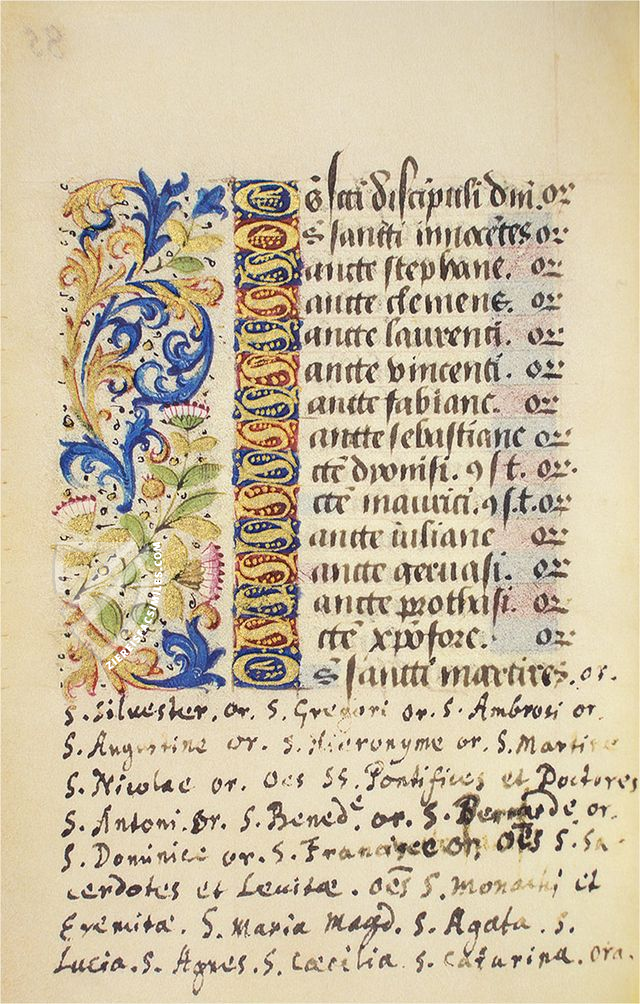 85
Oēs scti discipuli dn̄i. or
Oēs sancti innocētes or
Sancte stephane. or
Sancte clemens. or
Sancte laurenti. or
Sancte vincenti. or
Sancte fabiane. or
Sancte sebastiane or
Sctē dionisi. 9 s. t. or.
Sctē maurici. 9 s. t. or
Sancte iuliane or
Sancte geruasi. or
Sancte prothasi. or
Sctē xp̄ofore. or
Oēs sancti martires. or.
S. Siluester. or. S. Gregori or. S. Ambrosi or.
S. Augustine or. S. Hieronyme or. S. Martine
S. Nicolae or. Oēs SS. Pontifices et Doctores
S. Antoni. or. S. Benedē. or. S. Bernarde or.
S. Dominice or. S. Francisce or. Oēs S. Sa-
cerdotes et Leuitæ. Oēs S. Monachi et
Eremitæ. S. Maria Magd. S. Agata. S.
Lucia. S. Agnes. S. Cæcilia S. Caturina. Ora.
ZIEREIS FACSIMILES.COM